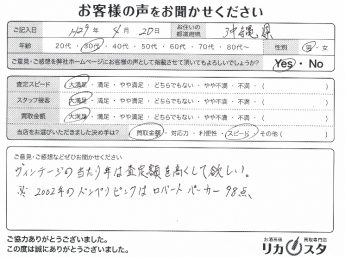 お客様の声をお聞かせください
ご記入日 H29年 4月 20日 お住いの都道府県 沖縄県
年齢 20代・30代・40代・50代・60代・70代〜 性別 男・女
ご意見・ご感想を弊社ホームページにお客様の声として掲載させて頂いてもよろしいでしょうか? Yes・No
査定スピード 大満足・満足・やや満足・どちらでもない・やや不満・不満・( )
スタッフ接客 大満足・満足・やや満足・どちらでもない・やや不満・不満・( )
買取金額 大満足・満足・やや満足・どちらでもない・やや不満・不満・( )
当店をお選びいただきました決め手は? 買取金額・対応力・利便性・スピード・その他( )
ご意見・ご感想などぜひお聞かせください
ヴィンテージの当たり年は査定額を高くして欲しい。
※ 2002年のドンペリピンクは ロバート パーカー 98点、
ご協力ありがとうございました。
この度は誠にありがとうございました。
お酒高価買取専門店
リカスタ